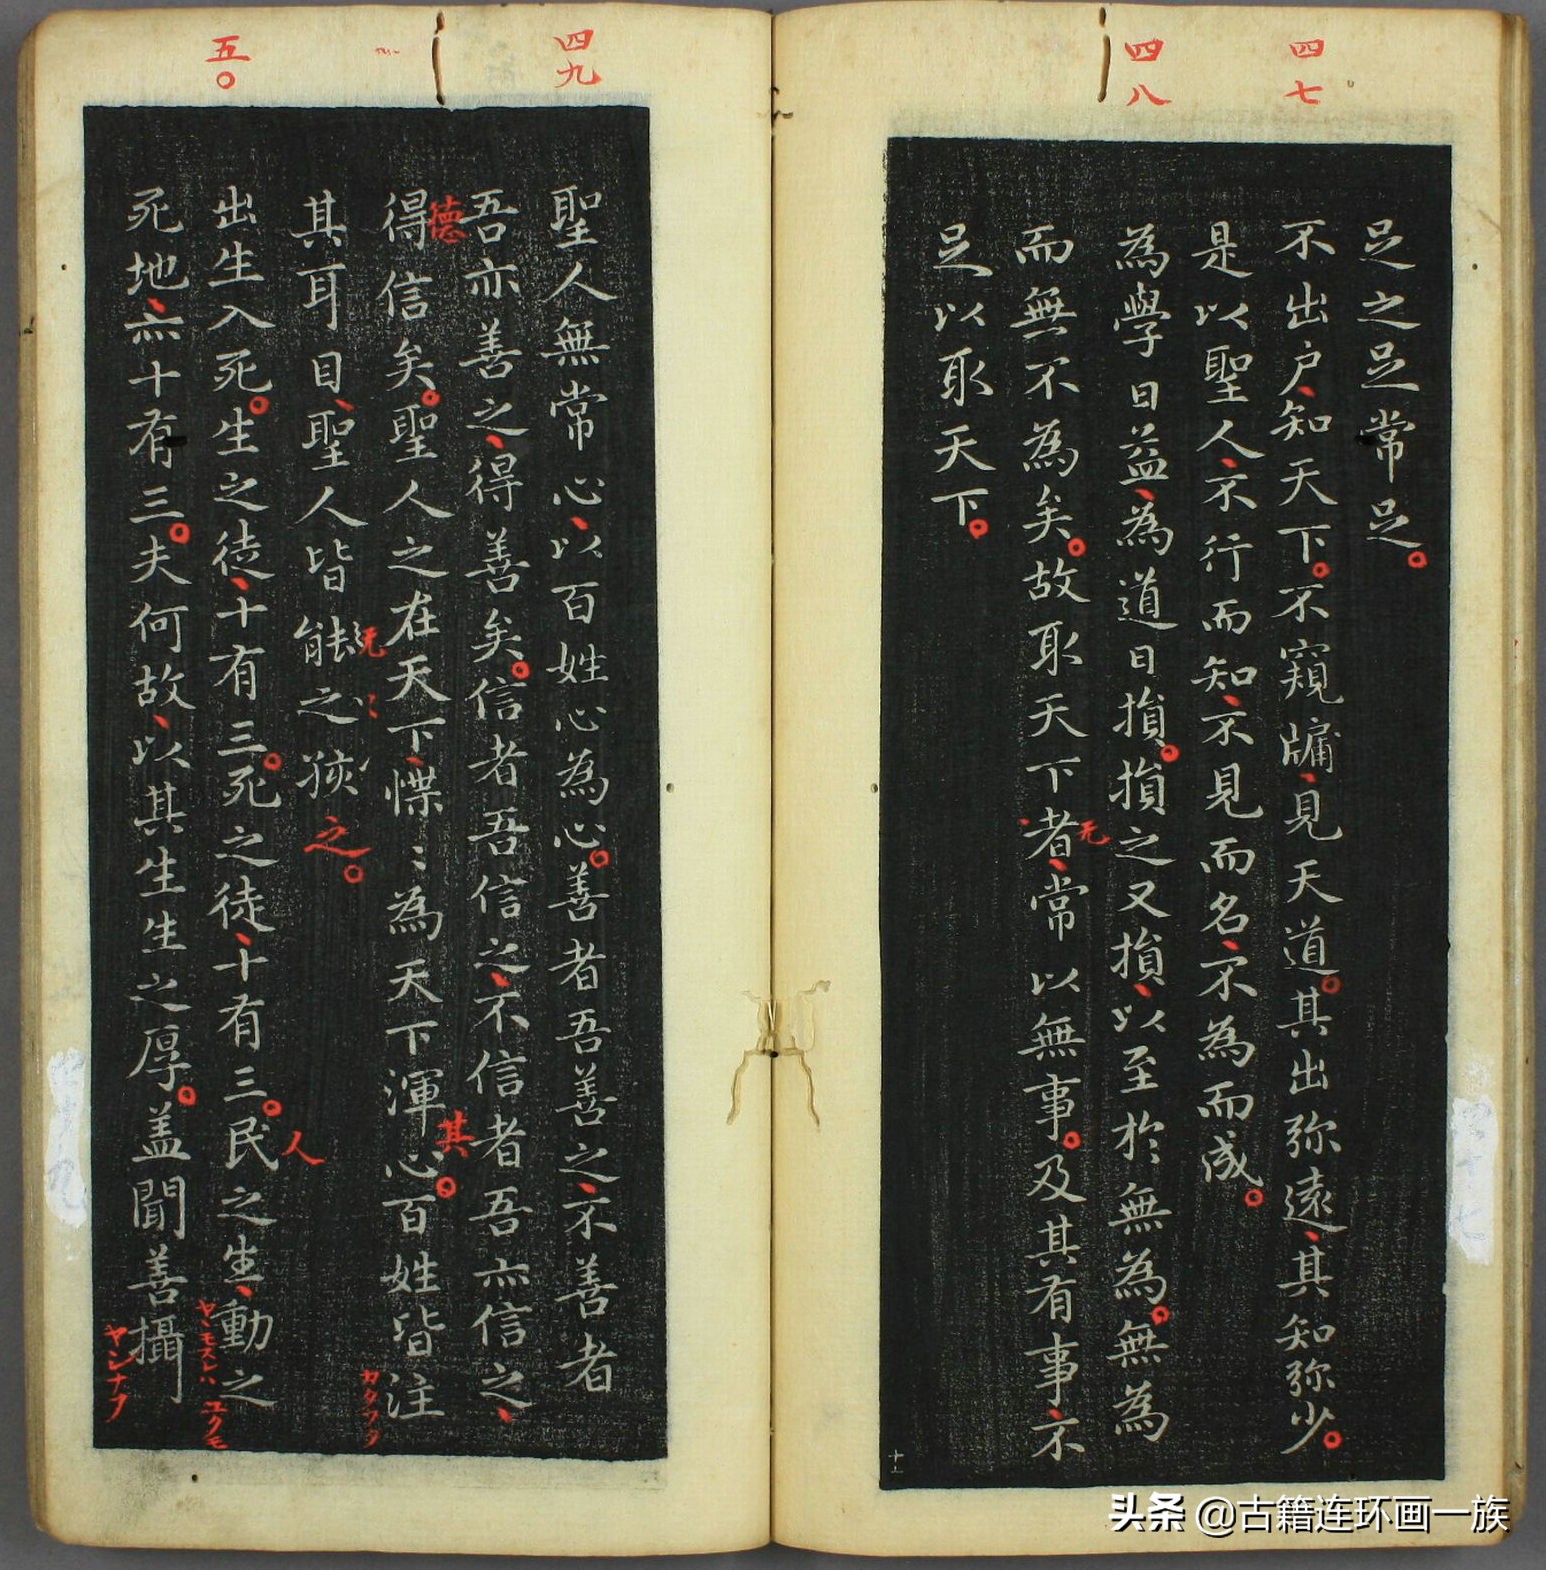 四七
四八
足之足常足。
不出户、知天下。不窺牖、見天道。其出弥遠、其知弥少。
是以聖人、不行而知、不見而名、不為而成。
為學日益、為道日損。損之又損、以至於無為。無為
而無不為矣。故取天下者、常以無事。及其有事、不
足以取天下。
无
十一
四九
五〇
聖人無常心、以百姓心為心。善者吾善之、不善者
吾亦善之、得善矣。信者吾信之、不信者吾亦信之、
德
得信矣。聖人之在天下、惵〻為天下渾心。百姓皆注
其
其耳目、聖人皆㹟之
之。
无
カタフク
出生入死。生之徒、十有三。死之徒、十有三。民之生、動之
人
死地、亦十有三。夫何故、以其生生之厚。盖聞善攝
ヤシナフ
头条 @古籍连环画一族